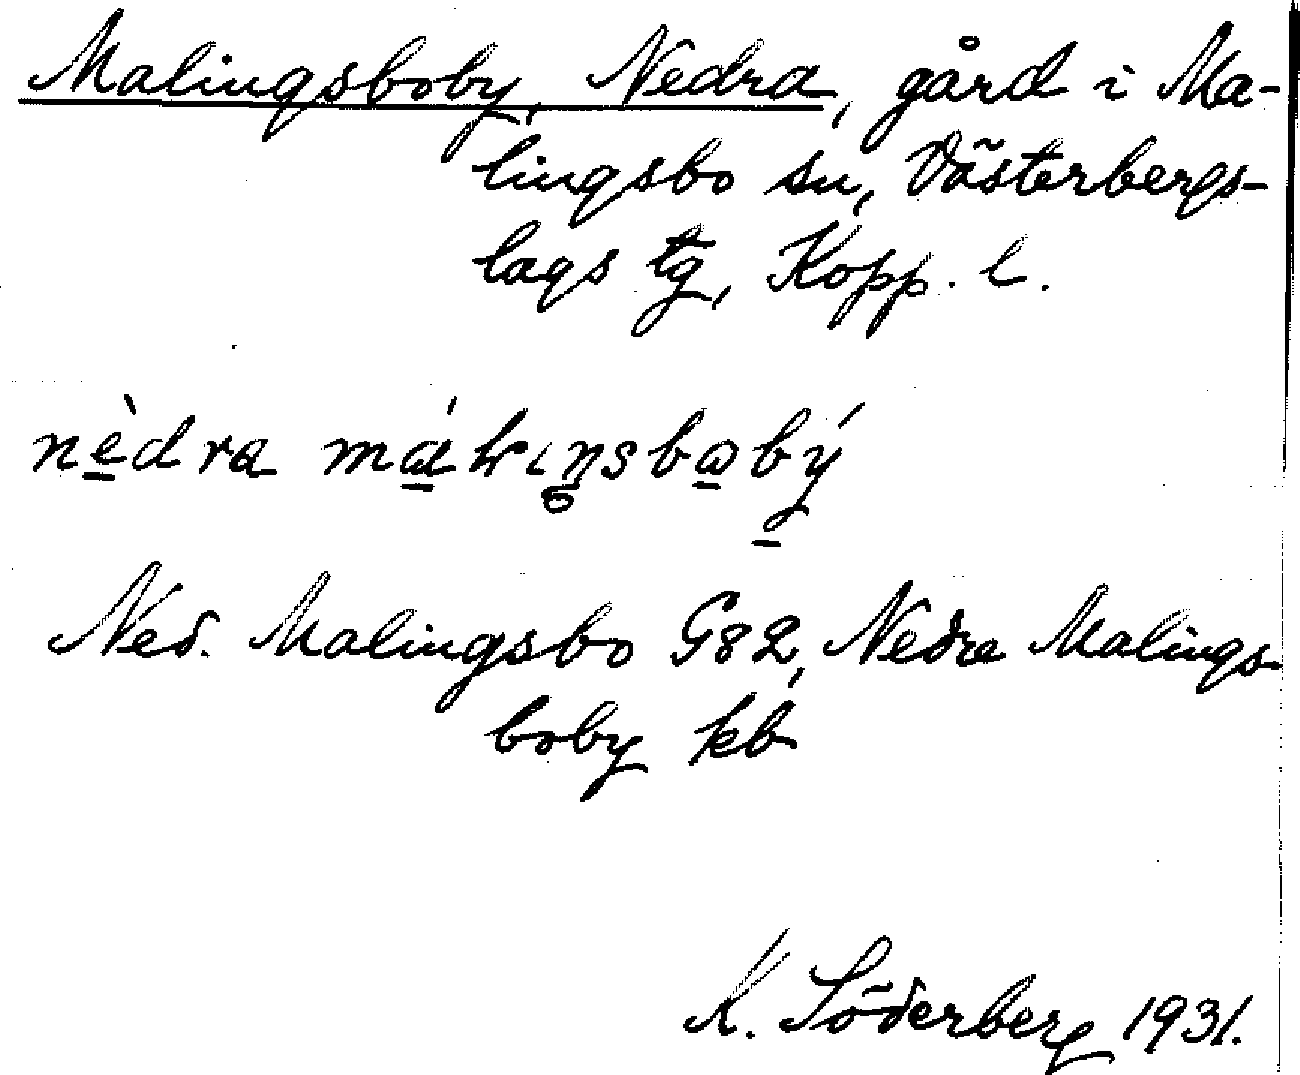 Malingsboby, Nedra, gård i Ma-
lingsbo sn, Västerbergs-
lags tg, Kopp. l.
nèdra
Ned. Malingsbo G82, Nedre Malings-
boby kb
K. Söderberg 1931.